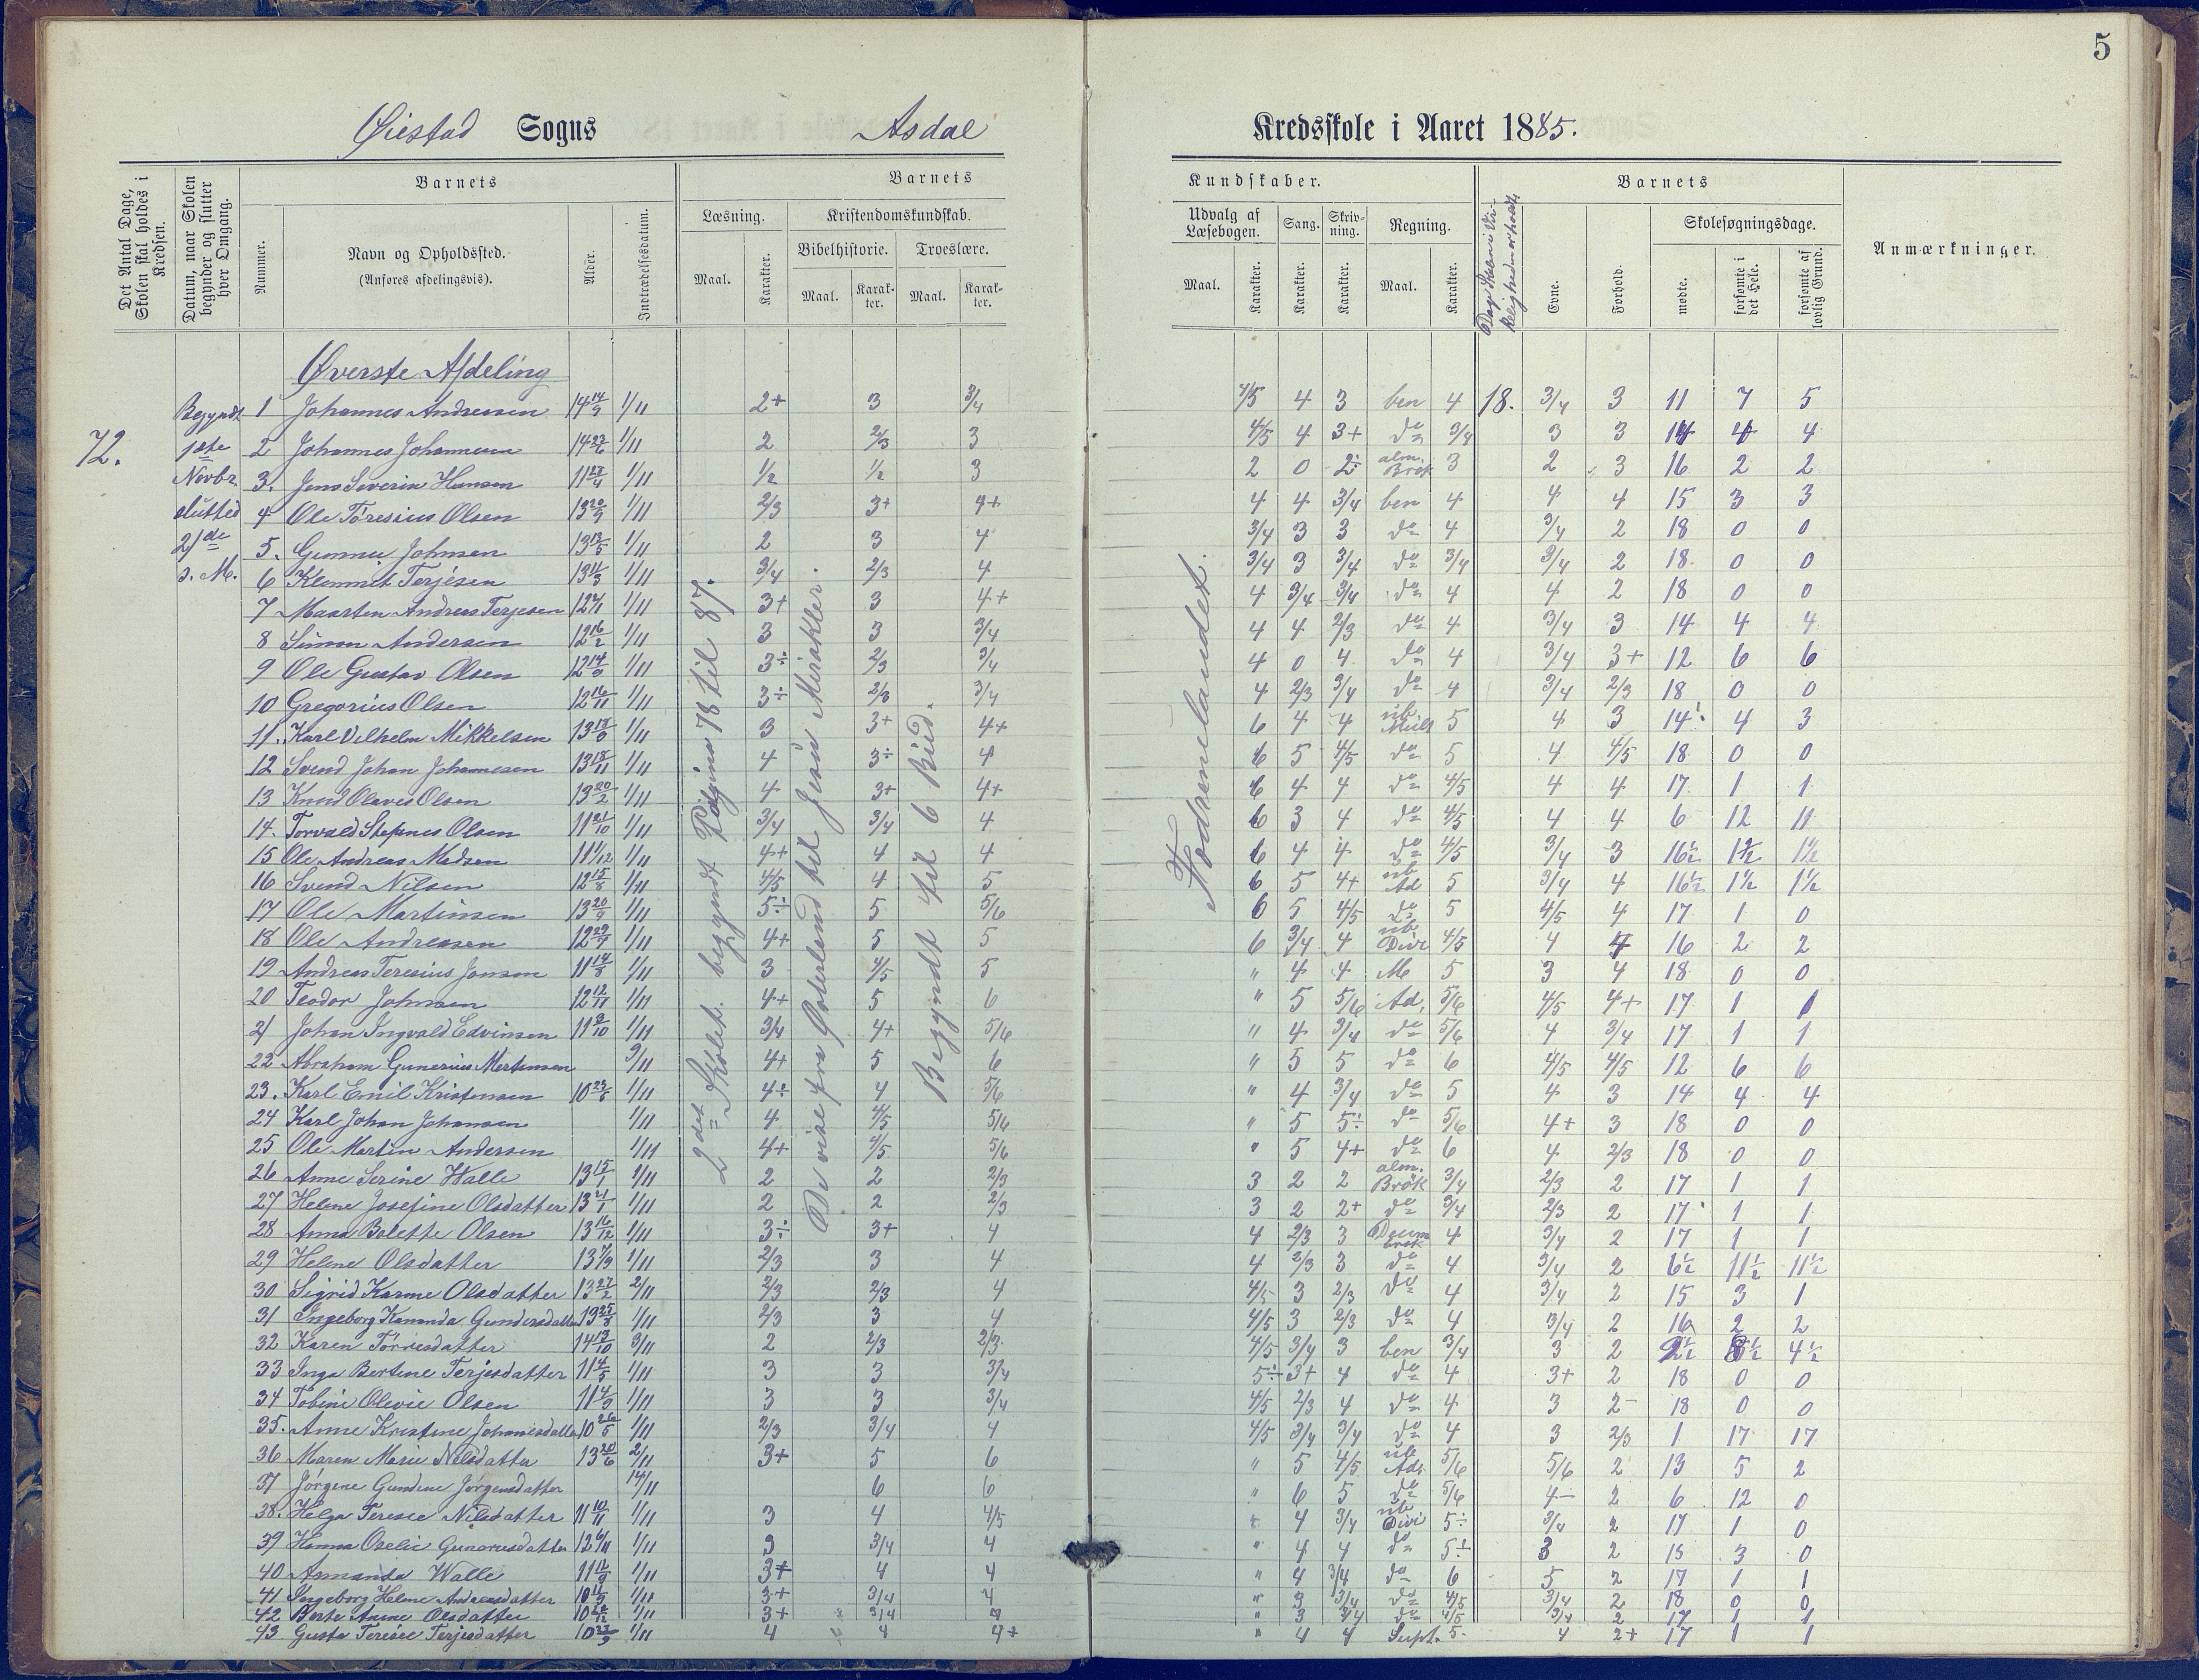 5
Øiestad Sogns Asdal Kredsskole i Aaret 1885.
Det Antal Dage, Skolen skal holdes i Kredsen.
Datum, naar Skolen begynder og slutter hver Omgang.
Barnets
Nummer.
Navn og Opholdssted.
(Anføres afdelingsvis).
Alder.
Indtrædelsesdatum.
Barnets Kundskaber.
Læsning.
Maal.
Karakter.
Kristendomskundskab.
Bibelhistorie.
Maal.
Karakter.
Troeslære.
Maal.
Karakter.
Udvalg af Læsebogen.
Maal.
Karakter.
Sang.
Karakter.
Skrivning.
Karakter.
Regning.
Maal.
Karakter.
Barnets
Evne.
Forhold.
Skolesøgningsdage.
mødte.
forsømte i det Hele.
forsømte af lovlig Grund.
Anmærkninger.
72.
Begyndt
1ste
Novbr.
slutted
21de
s. M.
2det Skolet. begyndt Pagina 78 til 87.
De vise fra Østerland til Jesu Mirakler.
Begyndt til 6 Bud.
Nordrelandet.
Øverste Afdeling
1 Johannes Andreasen 14 14/9 1/11 2+ 3 3/4 4/5 4 3 ben 4 18. 3/4 3 11 7 5
2 Johannes Johannesen 1/11 2 2/3 3 4/5 4 3+ do 3/4 3 3 14 4 4
3. Jens Severin Hansen 1/11 1/2 1/2 3 2 0 2÷ alm. Brøk 3 2 3 16 2 2
4 Ole Töresius Olsen 13 20/9 1/11 2/3 3+ 4+ 4 4 3/4 ben 4 4 4 15 3 3
5. Gunnu Johnsen 13 13/5 1/11 2 3 4 3/4 3 3 do 4 3/4 2 18 0 0
6 Klemmet Terjesen 13 11/3 1/11 3/4 2/3 4 3/4 3 3/4 do 3/4 3/4 2 18 0 0
7 Maarten Andreas Terjesen 1/11 3+ 3 4+ 4 3/4 3/4 do 4 4 2 18 0 0
8 Simon Andersen 12 16/2 1/11 3 3 3/4 4 4 2/3 do 4 3/4 3 14 4 4
9 Ole Gustav Olsen 1/11 3÷ 2/3 3/4 4 0 4 do 4 3/4 3+ 12 6 6
10 Gregorius Olsen 12 16/11 1/11 3÷ 2/3 3/4 4 2/3 3/4 do 4 3/4 2/3 18 0 0
11. Karl Vilhelm Mikkelsen 1/11 3 3+ 4+ 6 4 4 ub. Mult 5 4 3 14 4 3
12 Svend Johan Johannesen 13 18/11 1/11 4 3÷ 4 6 5 4/5 do 5 4 4/5 18 0 0
13 Knud Olaves Olsen 13 20/2 1/11 4 3+ 4+ 6 4 4 do 4/5 4 4 17 1 1
14. Torvald Stefanes Olsen 11 21/10 1/11 3/4 3/4 4 6 3 4 do 4/5 4 4 6 12 11
15 Ole Andreas Madsen 11 1/12 1/11 4+ 4 4 6 4 4 do 4/5 3/4 3 16½ 1½ 1½
16 Svend Nilsen 12 15/8 1/11 4/5 4 5 6 5 4+ ub Ad 5 3/4 4 16½ 1½ 1½
17 Ole Martinsen 13 20/9 1/11 5÷ 5 5/6 6 5 4/5 do 5 4/5 4 17 1 0
18 Ole Andreasen 1/11 4+ 5 5 6 3/4 4 ub Divi 4/5 4 4 16 2 2
19 Andreas Teresius Jonsen 11 14/8 1/11 3 4/5 5 " 4 4 M 5 3 4 18 0 0
20 Teodor Johnsen 12 12/11 1/11 4+ 5 6 " 5 5/6 Ad. 5/6 4/5 4+ 17 1 1
21 Johan Ingvald Edvinsen 1/11 3/4 4+ 5/6 " 4 3/4 do 5/6 4 3/4 17 1 1
22 Abraham Gunerius Mortensen 9/11 4+ 5 6 " 5 5 do 6 4/5 4/5 12 6 6
23. Karl Emil Kristensen 1/11 4÷ 4 5/6 " 4 3/4 do 5 4 3 14 4 4
24 Karl Johan Johansen 1/11 4 4/5 5/6 " 5 5÷ do 5/6 4+ 3 18 0 0
25 Ole Martin Andersen 1/11 4+ 4/5 5/6 " 5 4+ do 6 4 2/3 18 0 0
26 Anne Serine Walle 13 15/1 1/11 2 2 2/3 3 2 2 alm. Brøk 3/4 2/3 2 17 1 1
27 Helene Josefine Olsdatter 13 21/1 1/11 2 2 2/3 3 2 2+ do 3/4 2/3 2 17 1 1
28 Anna Bolette Olsen 13 16/12 1/11 3÷ 3+ 4 4 2/3 3 4 3/4 2 17 1 1
29 Helene Olsdatter 1/11 2/3 3 4 4 2/3 3 do 4 3/4 2 6½ 11½ 11½
30 Sigrid Karine Olsdatter 13 27/2 2/11 2/3 2/3 4 4/5 3 2/3 do 4 3/4 2 15 3 1
31 Ingeborg Kananda Gundersdatter 1/11 2/3 3 4 4/5 3 2/3 do 4 3/4 2 16 2 2
32 Karen Törresdatter 14 13/10 3/11 2 2/3 2/3 4/5 3/4 3 ben 3/4 3 2 4½
33 Inga Bertine Terjesdatter 11 4/5 1/11 3 3 3/4 5÷ 3+ 4 do 4 3+ 2 18 0 0
34 Tobine Olevie Olsen 1/11 3 3 3/4 4/5 2/3 4 do 4 3 2- 18 0 0
35. Anne Kristine Johannesdatter 10 26/5 1/11 2/3 3/4 4 4/5 3/4 3/4 do 4 3 2/3 1 17 17
36 Maren Marie Nilsdatter 13 20/6 2/11 3+ 5 6 " 5 4/5 ub Adi 5/6 5/6 2 13 5 2
37 Jørgine Gundine Jørgensdatter 14/11 6 6 " 6 5 do 5/6 4- 2 6 12 0
38. Helga Teresie Nilsdatter 11 10/11 1/11 3 4 4/5 " 4 3/4 ub Divi 5÷ 3/4 2 17 1 0
39 Hanna Oselie Gunarusdatter 12 6/11 1/11 3 3/4 4 " 4 4 do 5÷ 3 2 15 3 0
40 Amanda Walle 1/11 3+ 4 4 " 4 3/4 do 6 5 2 17 1 1
41 Ingeborg Helene Andreasdatter 1/11 3+ 3/4 4 " 3 3/4 do 4/5 3/4 2 18 0 0
42 Berte Anine Olsdatter 1/11 3+ 3/4 " 3 3/4 do 4/5 3/4 2 17 1 1
43 Gusta Teresie Terjesdatter 1/11 4 4 4+ " 4 4 Supt. 5. 4 2+ 17 1 1